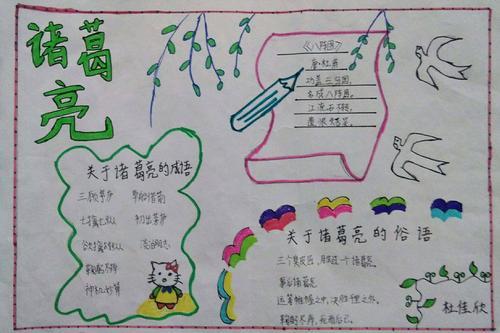 诸葛亮
《八阵图》
唐·杜甫
功盖三分国，
名成八阵图。
江流石不转，
遗恨失吞吴。
关于诸葛亮的成语
三顾茅庐
七擒七纵
初出茅庐
鞠躬尽瘁
神机妙算
关于诸葛亮的俗语
三个臭皮匠，顶过一个诸葛亮。
事后诸葛亮
运筹帷幄之中，决胜千里之外。
鞠躬尽瘁，死而后已。
杜佳欣